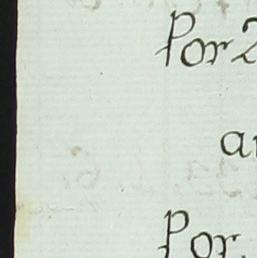 Por 2
a
Por.